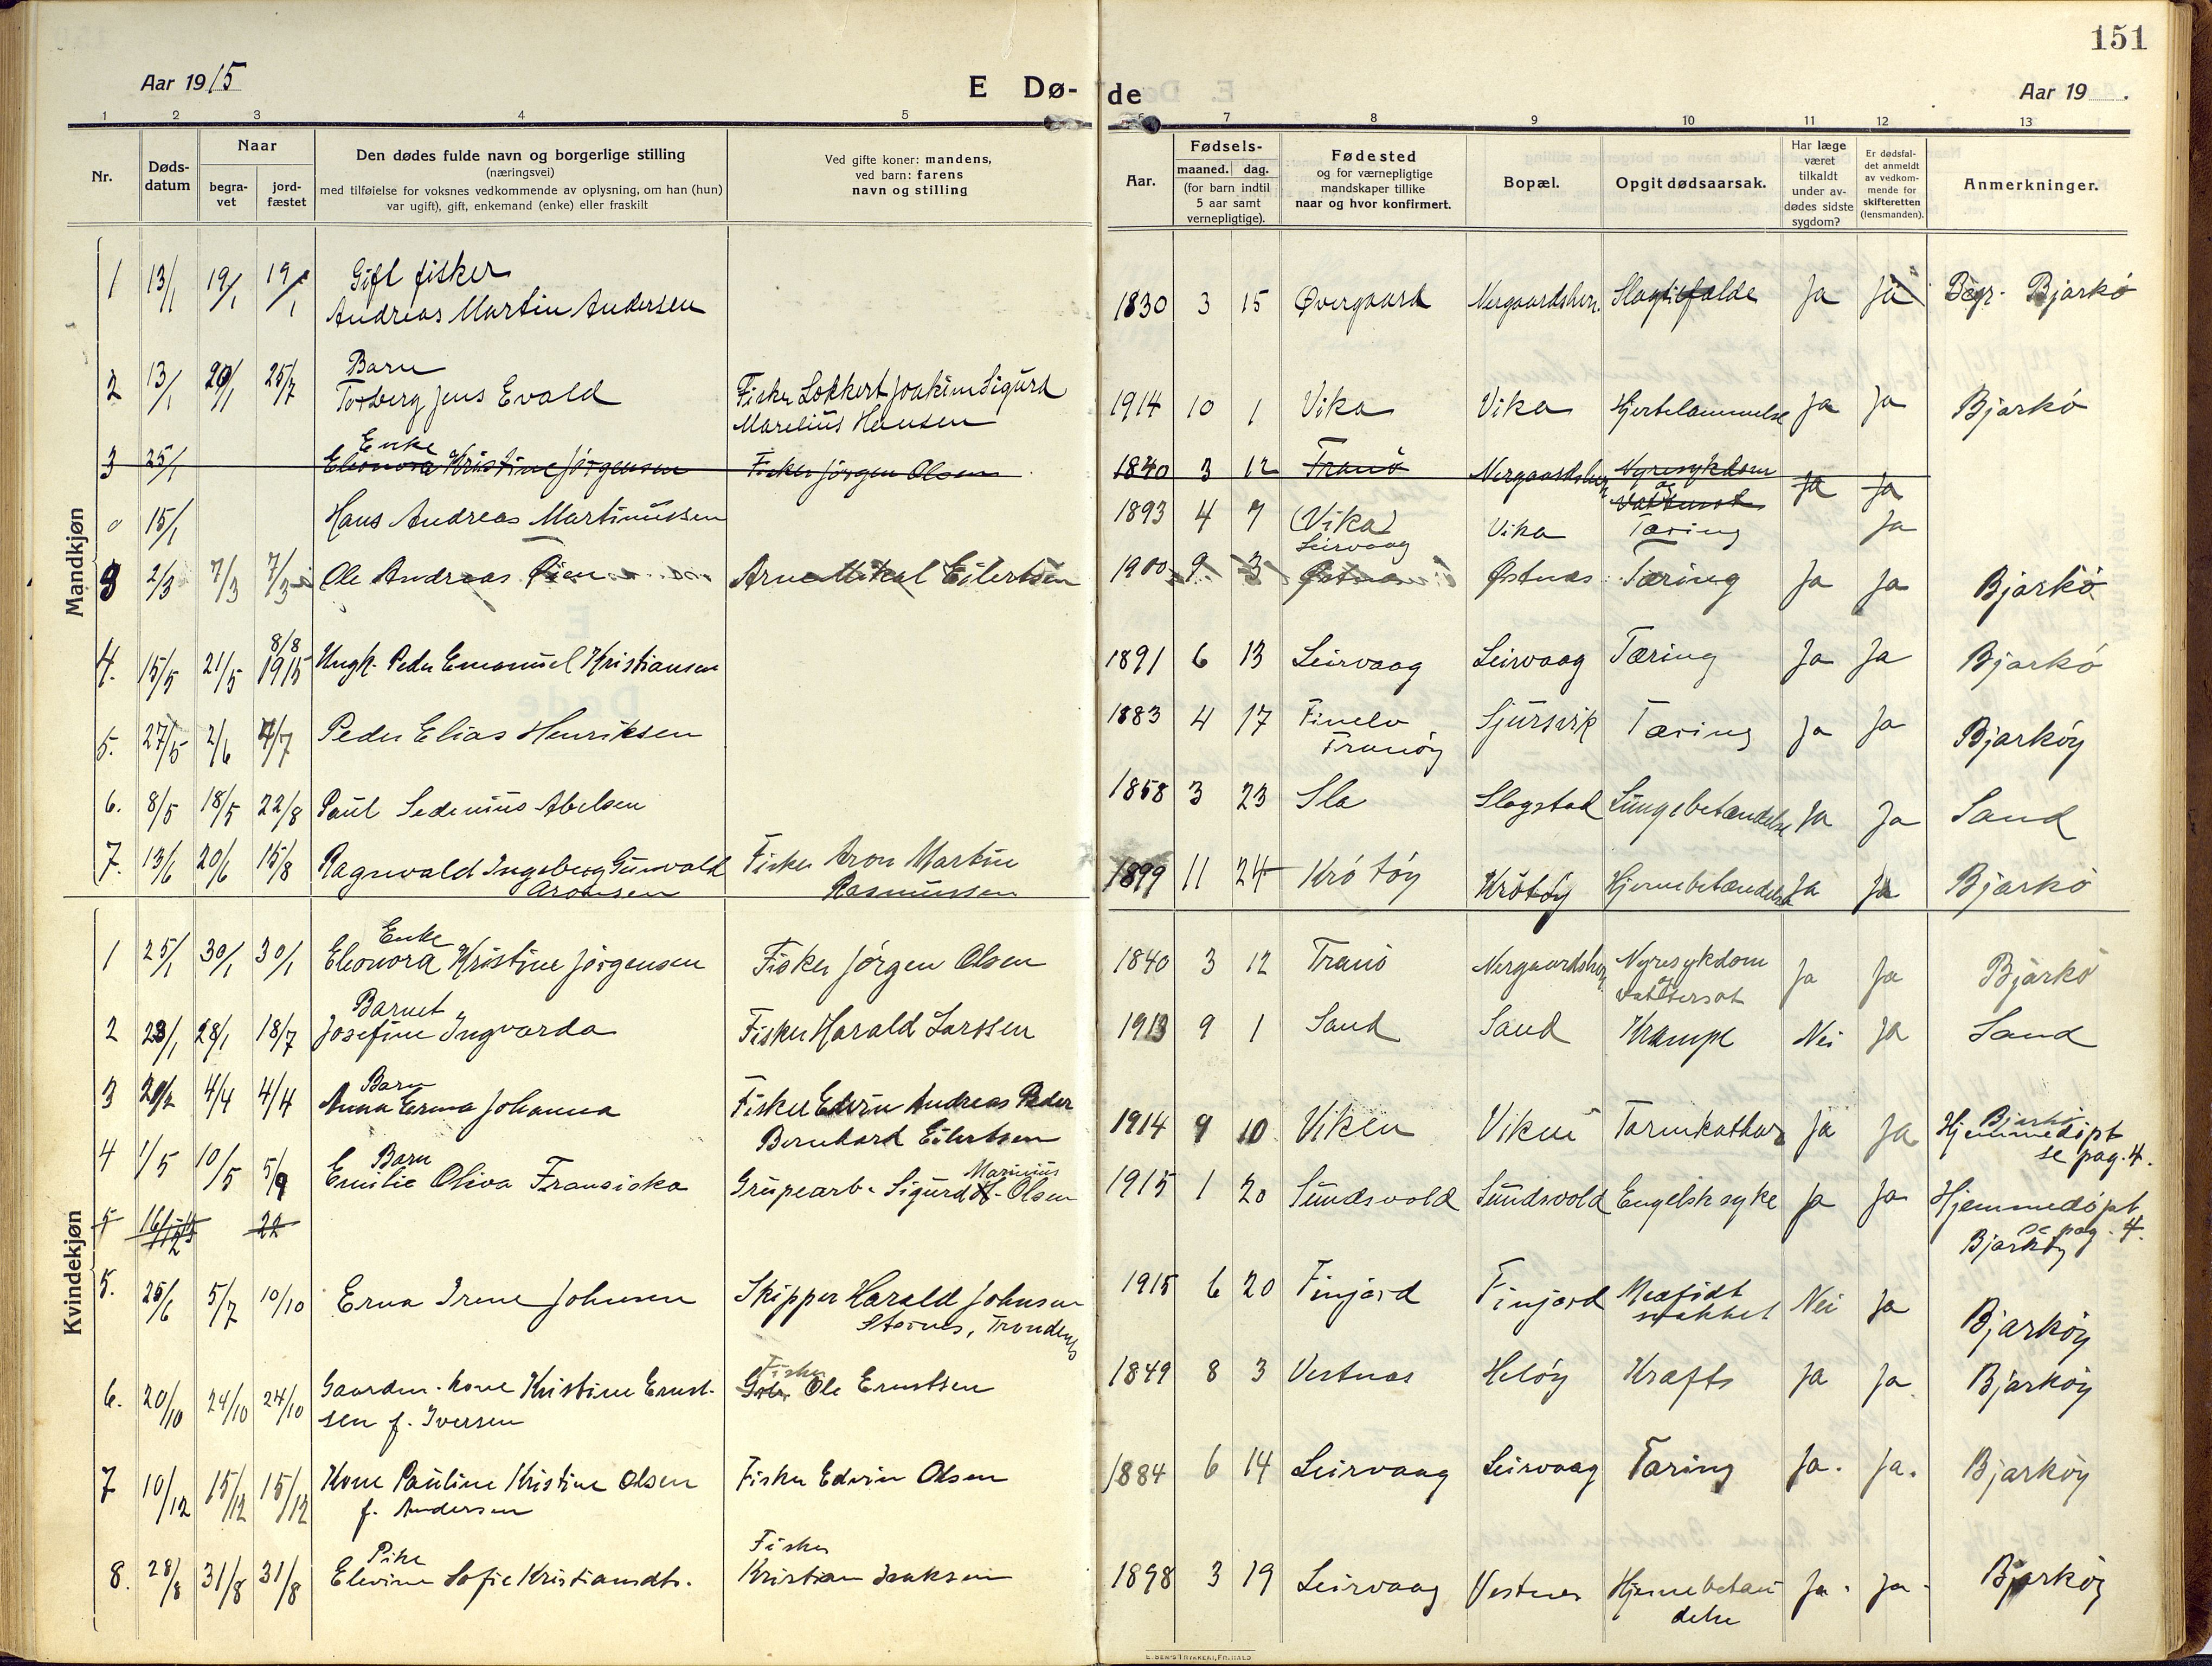 151
Aar 1915
E Dø-
de
Aar 19
1 2 3 4 5 6 7 8 9 10 11 12 13
Nr.
Døds-
datum
Naar
begra-
vet
jord-
fæstet
Den dødes fulde navn og borgerlige stilling
(næringsvei)
med tilføielse for voksnes vedkommende av oplysning, om han (hun)
var ugift), gift, enkemand (enke) eller fraskilt
Ved gifte koner: mandens,
ved barn: farens
navn og stilling
Aar.
Fødsels-
maaned. dag.
(for barn indtil
5 aar samt
vernepligtige).
Fødested
og for værnepligtige
mandskaper tillike
naar og hvor konfirmert.
Bopæl.
Opgit dødsaarsak.
Har læge
været
tilkaldt
under av-
dødes sidste
sygdom?
Er dødsfal-
det anmeldt
av vedkom-
mende for
skifteretten
(lensmanden).
Anmerkninger.
Mandkjøn
Gift fisker
1 13/1 19/1 19/1 Andreas Martin Andersen 1830 3 15 Øvergaard Nergaardshvn. Slagtilfælde Ja Ja Begr. Bjarkö
Barn
2 13/1 20/1 25/7 Torberg Jens Evald Fisker Lokkert Joakim Sigurd 1914 10 1 Vika Vika Hjertelammelse Ja Ja Bjarkö
Marelius Hansen
Enke
3 25/1 Eleonora Kristine Jörgensen Fisker Jörgen Olsen 1840 3 12 Tranö Nergaardshvn Nyresykdom Ja Ja
og
Vattersot
0 15/1 Hans Andreas Martinussen 1893 4 7 (Vika) Vika Tæring Ja
Leirvaag
3 2/3 7/3 7/3 Ole Andreas Arne Mikal Eilertsen 1900 9 3 Østnes Østnes Tæring Ja Ja Bjarkö
8/8
4. 15/5 21/5 1915 Ungk. Peder Emanuel Kristiansen 1891 6 13 Leirvaag Leirvaag Tæring Ja Ja Bjarkö
5. 27/5 2/6 4/7 Peder Elias Henriksen 1883 4 17 Finelv Sjursvik Tæring Ja Ja Bjarköy
Tranöy
6. 8/5 18/5 22/8 Paul Sedenius Abelsen 1858 3 23 Sla Slagstad Lungebetændelse Ja Ja Sand
7. 13/6 20/6 15/8 Ragnvald Ingeberg Gunvald Fisker Aron Martin 1899 11 24 Krötöy Krötöy Hjernebetændelse Ja Ja Bjarkö
Aronsen Rasmussen
Kvindekjøn
Enke
1 25/1 30/1 30/1 Eleonora Kristine Jörgensen Fisker Jörgen Olsen 1840 3 12 Tranö Nergaardshvn Nyresykdom Ja Ja Bjarkö
og
Vattersot
Barnet
2 23/1 28/1 18/7 Josefine Ingvarda Fisker Harald Larssen 1913 9 1 Sand Sand Krampe Nei Ja Sand
Barn
3 20/2 4/4 4/4 Anna Erma Johanna Fisker Edvin Andreas Peder 1914 9 10 Viken Viken Tarmkathar Ja Ja Bjarkö
Bernhard Eilertsen Hjemmedöpt
se pag. 4.
Barn Marinius
4 1/5 10/5 5/9 Emilie Oliva Fransiska Grupearb. Sigurd Olsen 1915 1 20 Sundsvold Sundsvold Engelsk syke Ja Ja Hjemmedöpt
se pag. 4.
Bjarköy
5 22
5. 25/6 5/7 10/10 Erna Irene Johnsen Skipper Harald Johnsen 1915 6 20 Finjord Finjord Medfödt Nei Ja Bjarköy
svakhet
Stornes, Trondenes
Fisker
6. 20/10 24/10 24/10 Gaardm. kone Kristine Ernst- Ole Ernstsen 1849 8 3 Vestnes Helöy Kræft Ja Ja Bjarköy
sen f. Iversen
7 10/12 15/12 15/12 Kone Pauline Kristine Olsen Fisker Edvin Olsen 1884 6 14 Leirvaag Leirvaag Tæring Ja. Ja. Bjarköy
f. Andersen
Pike Fisker
8. 28/8 31/8 31/8 Elevine Sofie Kristiansdtr. Kristian Isaksen 1898 3 19 Leirvaag Vestnes Hjernebetæn- Ja. Ja. Bjarköy
delse